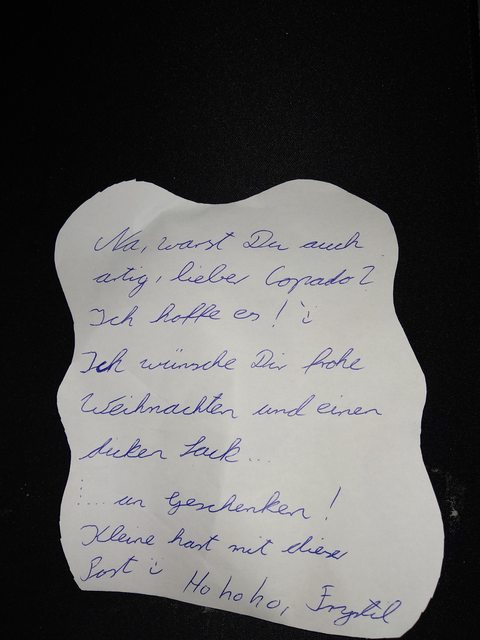 Na, warst Du auch
artig, lieber Copado?
Ich hoffe es! :)
Ich wünsche Dir frohe
Weihnachten und einen
dicken Sack...
... an Geschenken!
Kleine hast mit dieser
Post :) Ho ho ho,